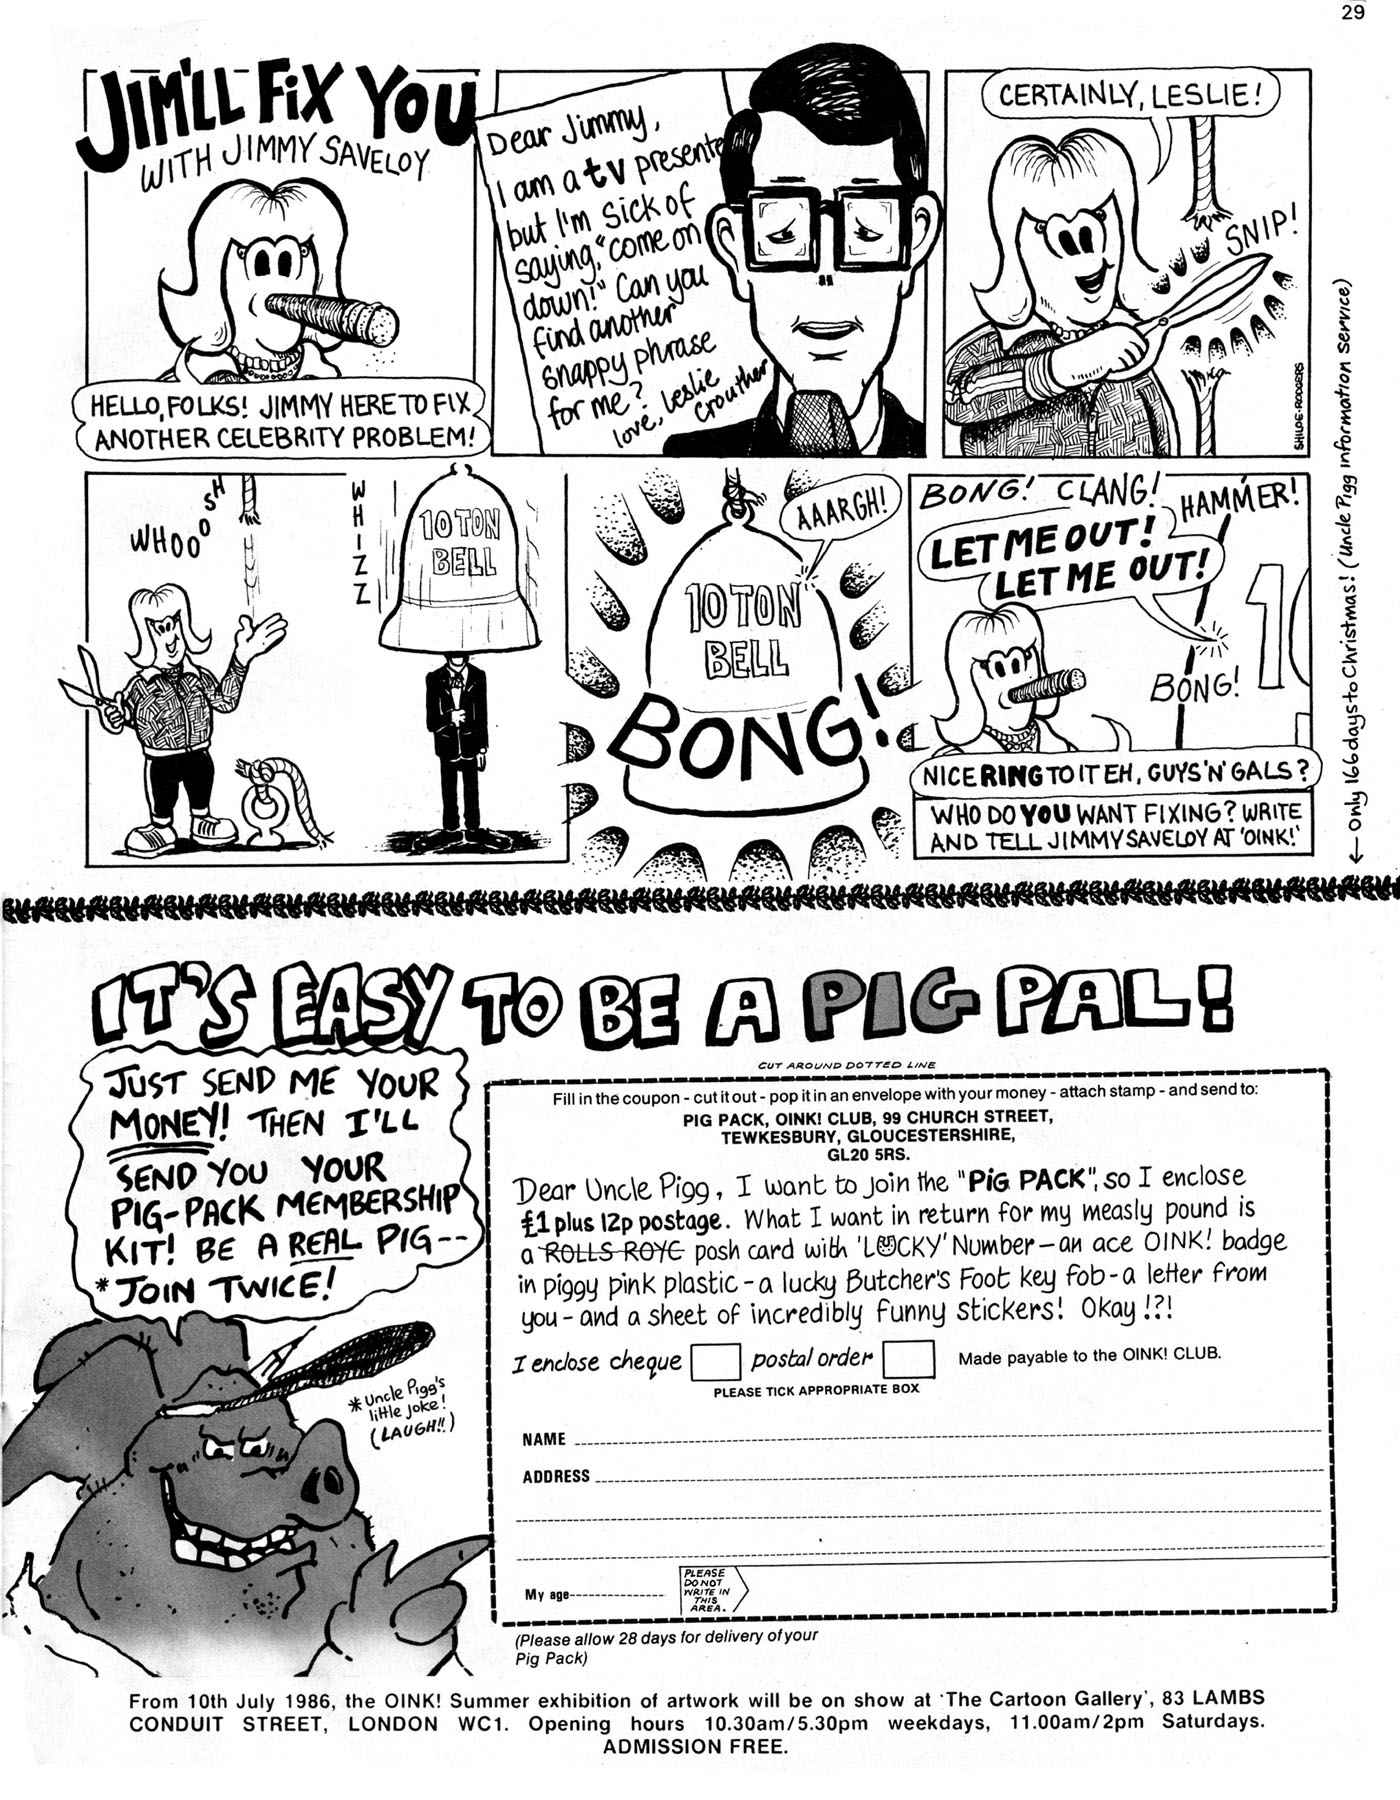 29
JIM'LL FiX YOU
WITH JIMMY SAVELOY
HELLO, FOLKS! JIMMY HERE TO FIX
ANOTHER CELEBRITY PROBLEM!
Dear Jimmy,
I am a tv presente
but I'm sick of
saying, "come on
down!" Can you
find another
snappy phrase
for me?
love, Leslie
Crouther
CERTAINLY, LESLIE!
SNIP!
SHILOE-RODGERS
WHOOOSH
WHIZZ
10 TON
BELL
AAARGH!
10 TON
BELL
BONG!
BONG! CLANG! HAMMER!
LET ME OUT!
LET ME OUT!
10
BONG!
NICE RING TO IT EH, GUYS 'N' GALS?
WHO DO YOU WANT FIXING? WRITE
AND TELL JIMMY SAVELOY AT 'OINK!'
← Only 166 days to Christmas! (Uncle Pigg information service)
IT'S EASY TO BE A PIG PAL!
JUST SEND ME YOUR
MONEY! THEN I'LL
SEND YOU YOUR
PIG-PACK MEMBERSHIP
KIT! BE A REAL PIG--
*JOIN TWICE!
* Uncle Pigg's
little joke!
(LAUGH!!)
CUT AROUND DOTTED LINE
Fill in the coupon - cut it out - pop it in an envelope with your money - attach stamp - and send to:
PIG PACK, OINK! CLUB, 99 CHURCH STREET,
TEWKESBURY, GLOUCESTERSHIRE,
GL20 5RS.
Dear Uncle Pigg, I want to join the "PiG PACK", so I enclose
£1 plus 12p postage. What I want in return for my measly pound is
a ROLLS ROYC posh card with 'LUCKY' Number - an ace OINK! badge
in piggy pink plastic - a lucky Butcher's Foot key fob - a letter from
you - and a sheet of incredibly funny stickers! Okay!?!
I enclose cheque postal order Made payable to the OINK! CLUB.
PLEASE TICK APPROPRIATE BOX
NAME
ADDRESS
My age
PLEASE
DO NOT
WRITE IN
THIS
AREA.
(Please allow 28 days for delivery of your
Pig Pack)
From 10th July 1986, the OINK! Summer exhibition of artwork will be on show at 'The Cartoon Gallery', 83 LAMBS
CONDUIT STREET, LONDON WC1. Opening hours 10.30am/5.30pm weekdays, 11.00am/2pm Saturdays.
ADMISSION FREE.